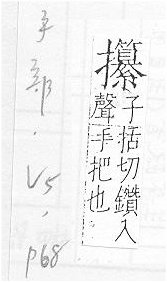 攥
子括切鑽入
聲手把也
手部. V5, p68